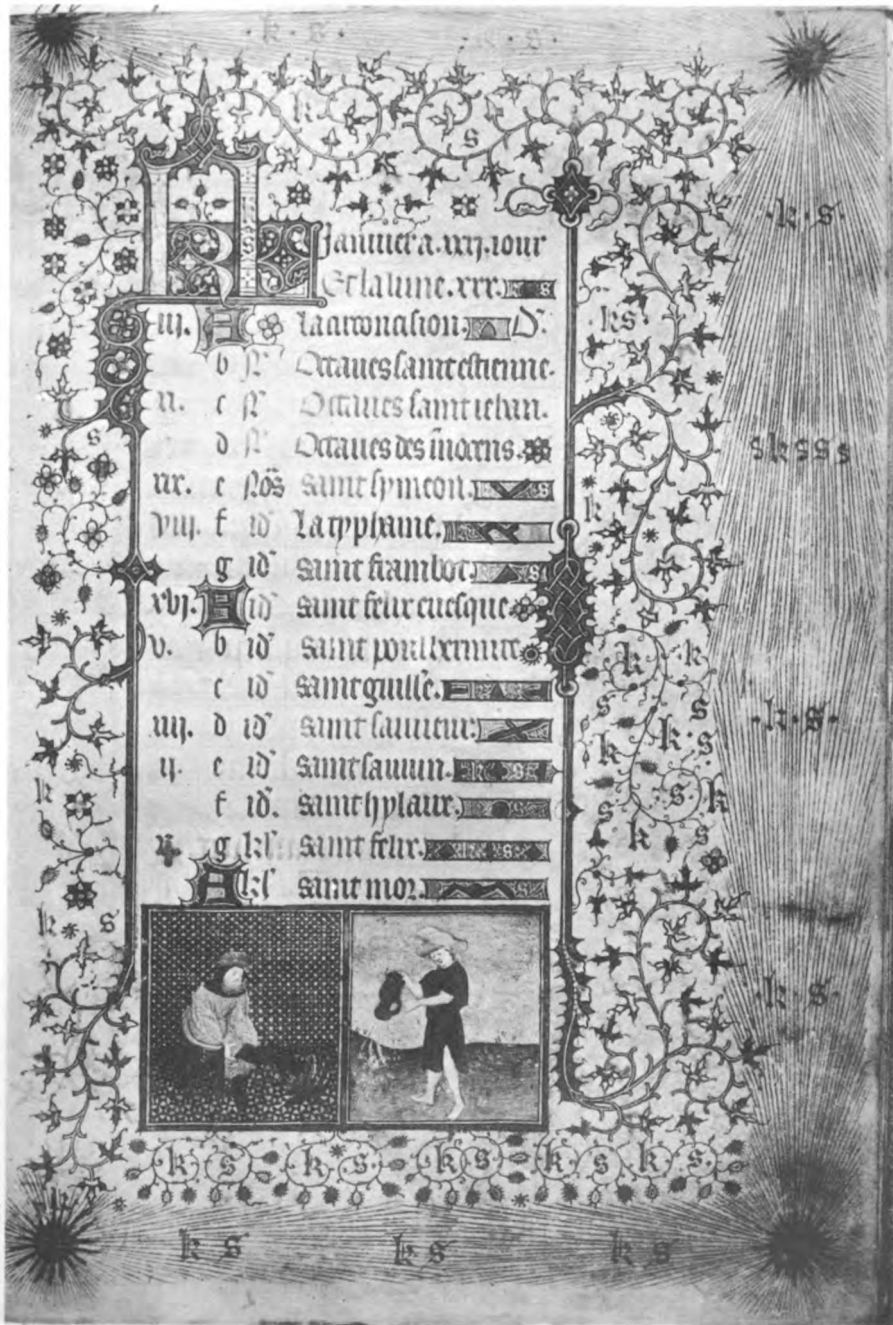 k s
k s
k
s
k s
KL Januier a .xxxj. iour
Et la lune .xxx. s
iij. A la circoncision. D.
ks
b N Octaues saint estienne.
xi. c N Octaues saint iehan.
d N Octaues des innocens.
s
sksss
xix. e Nōs saint symeon. s
k
viij. f id la typhaine.
g id saint frambot. s
xvj. A id saint felix euesque
v. b id saint poul hermite
k k
c id saint guille.
s s
xiij. d id saint sauueur.
k k s
k s
ij. e id saint sauuin. k s
k
f id. saint hylaire. s
s s k
x. g kl saint felix. k s
k s
A kl saint mor.
k s
k s
k s k s k s k s k s
k s k s k s